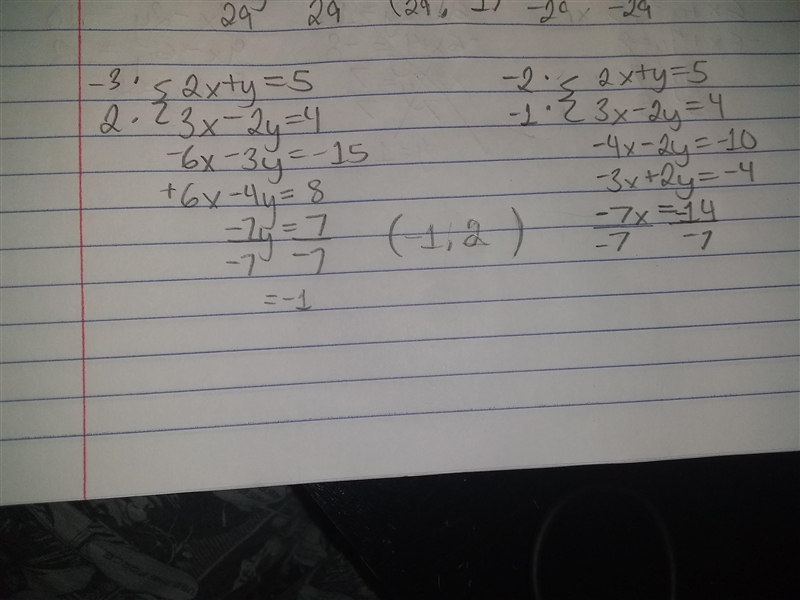 29 29 (29, 1) -29 -29
-3 · { 2x+y=5
2 · { 3x-2y=4
-6x-3y=-15
+6x-4y=8
-7y=7
-7 -7
=-1
(-1, 2)
-2 · { 2x+y=5
-1 · { 3x-2y=4
-4x-2y=-10
-3x+2y=-4
-7x=-14
-7 -7